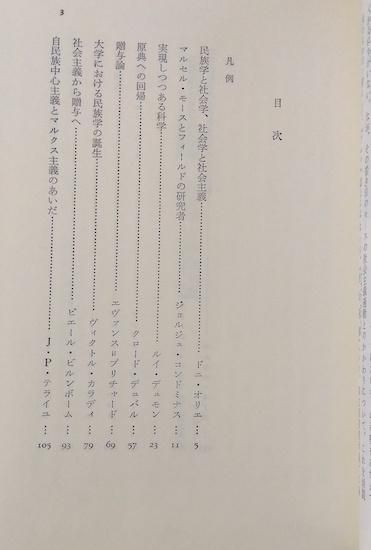 目次
凡例
民族学と社会学、社会学と社会主義…………ドニ・オリエ…5
マルセル・モースとフィールドの研究者…………ジョルジュ・コンドミナス…11
実現しつつある科学…………ルイ・デュモン…23
原典への回帰…………クロード・デュバル…57
贈与論…………エヴァンス=プリチャード…69
大学における民族学の誕生…………ヴィクトル・カラディ…79
社会主義から贈与へ…………ピエール・ビルンボーム…93
自民族中心主義とマルクス主義のあいだ…………J・P・テライユ…105
3